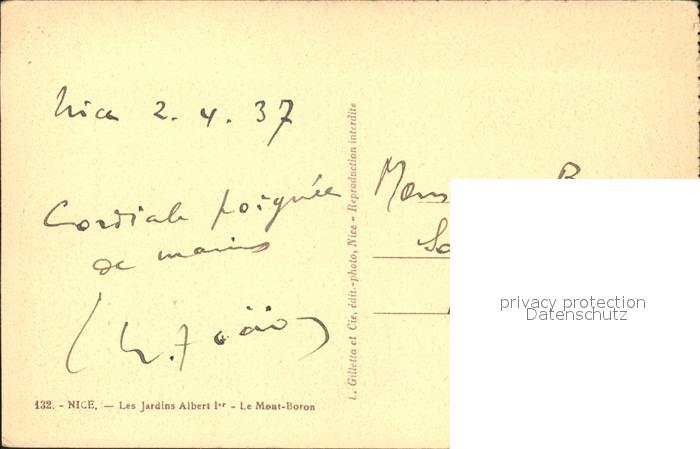 Nice 2. 4. 37
Cordiale poignée
de mains
132. - NICE. — Les Jardins Albert Ier - Le Mont-Boron
L. Gilletta et Cie, édit.-photo, Nice - Reproduction interdite
privacy protection
Datenschutz